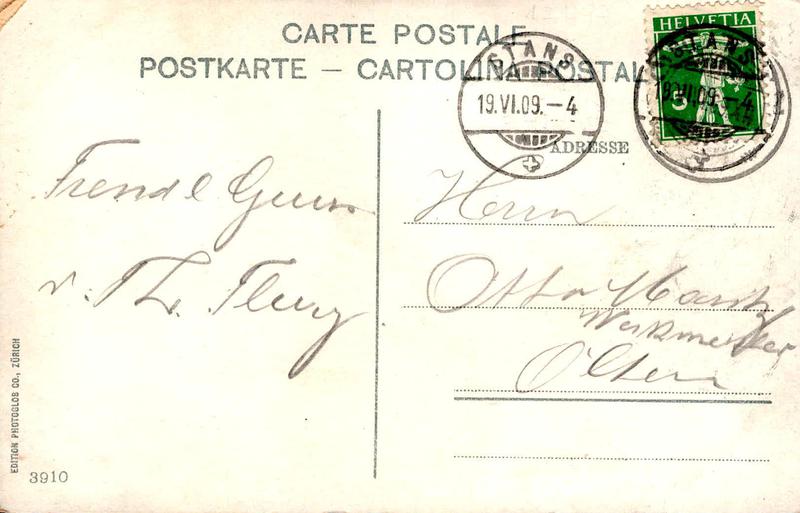 CARTE POSTALE
POSTKARTE — CARTOLINA POSTALE
HELVETIA
5
STANS
19.VI.09.-4
STANS
19.VI.09.-4
ADRESSE
Freundl Gruss
v. Th. Flury
Herrn
Otto
Werkmeister
Olten
EDITION PHOTOGLOB CO., ZÜRICH
3910